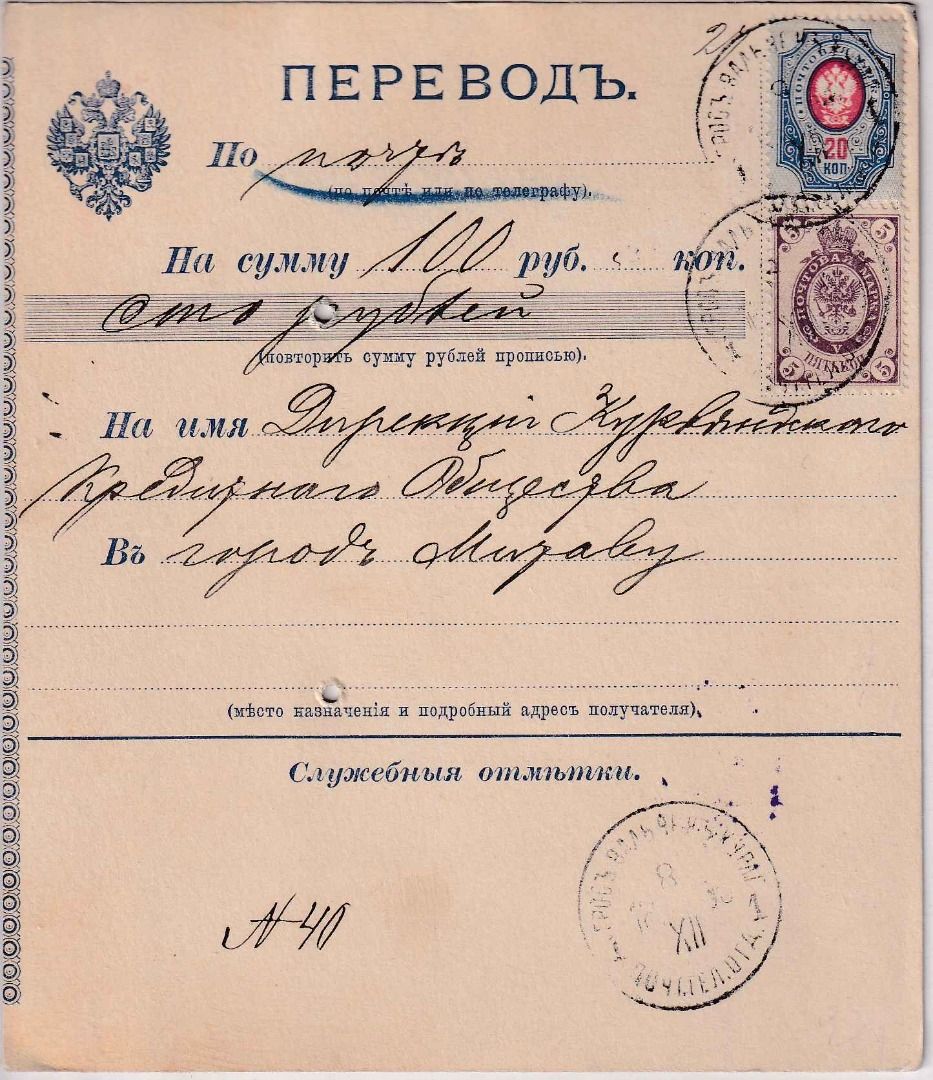 ПЕРЕВОДЪ.
По почтѣ
(по почтѣ или по телеграфу).
20
КОП
На сумму 100 руб. коп.
сто рублей
(повторить сумму рублей прописью).
ПОЧТОВАЯ МАРКА
5 5
V
ПЯТЬ КОП
5 5
На имя Дирекціи Курляндскаго
Кредитнаго Общества
Въ городъ Митаву
(мѣсто назначенія и подробный адресъ получателя).
Служебныя отмѣтки.
ГРОСЪ
8
XII
ПОЧ. ТЕЛ. ОТД.
N 40